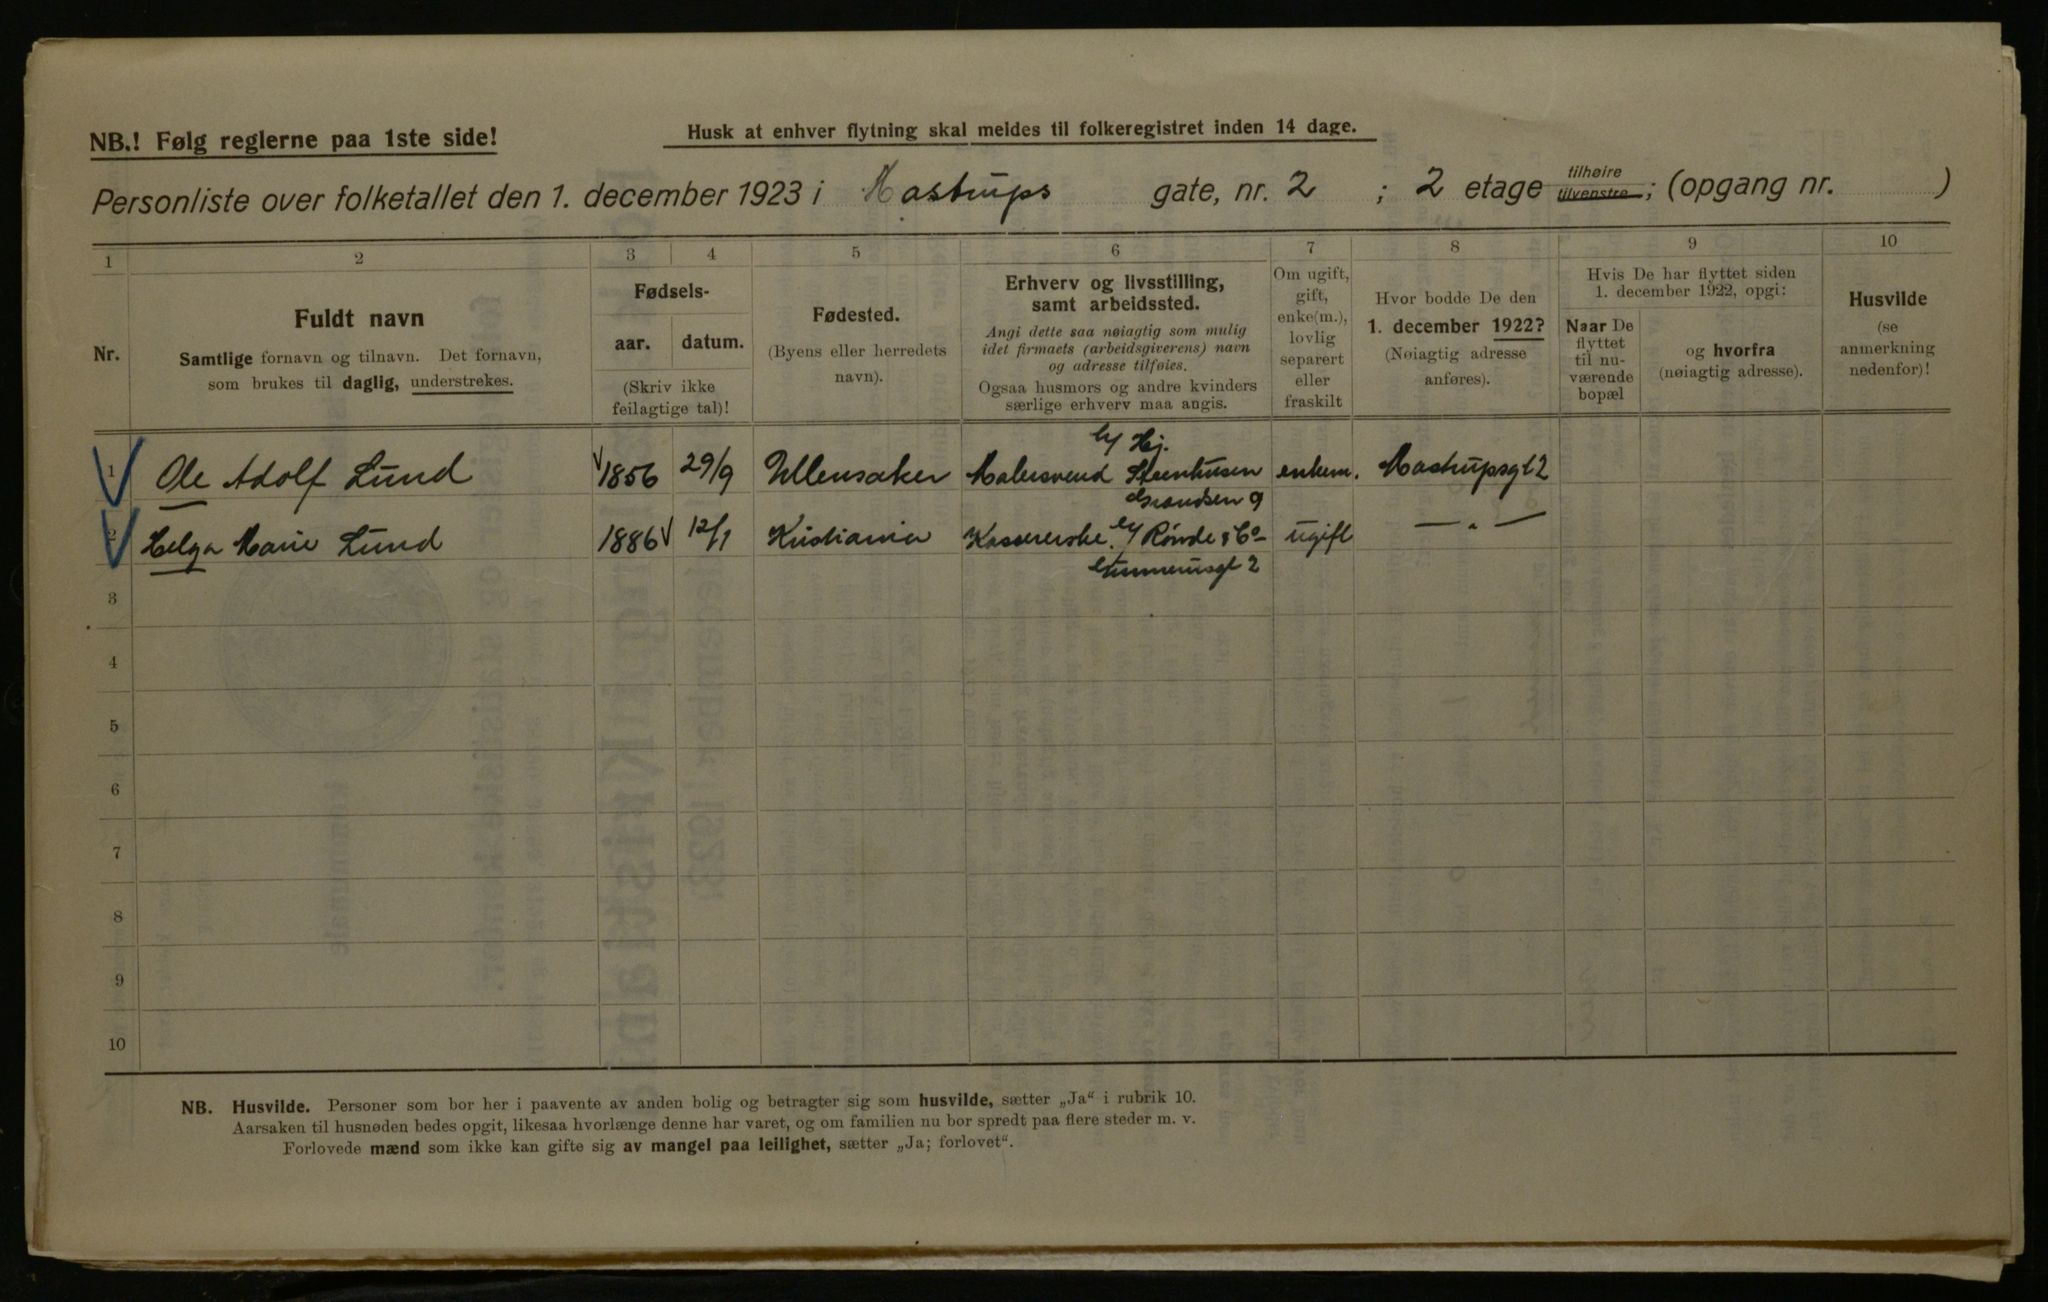 NB.! Følg reglerne paa 1ste side!
Husk at enhver flytning skal meldes til folkeregistret inden 14 dage.
Personliste over folketallet den 1. december 1923 i Mastrups gate, nr. 2 ; 2 etage tilhøire tilvenstre; (opgang nr. )
1 2 3 4 5 6 7 8 9 10
Nr.
Fuldt navn
Samtlige fornavn og tilnavn. Det fornavn,
som brukes til daglig, understrekes.
Fødsels-
aar. datum.
(Skriv ikke
feilagtige tal)!
Fødested.
(Byens eller herredets
navn).
Erhverv og livsstilling,
samt arbeidssted.
Angi dette saa nøiagtig som mulig
idet firmaets (arbeidsgiverens) navn
og adresse tilføies.
Ogsaa husmors og andre kvinders
særlige erhverv maa angis.
Om ugift,
gift,
enke(m.),
lovlig
separert
eller
fraskilt
Hvor bodde De den
1. december 1922?
(Nøiagtig adresse
anføres).
Hvis De har flyttet siden
1. december 1922, opgi:
Naar De
flyttet
til nu-
værende
bopæl
og hvorfra
(nøiagtig adresse).
Husvilde
(se
anmerkning
nedenfor)!
1 Ole Adolf Lund 1856 29/9 Ullensaker Malersvend Hj. Steenhusen enkem. Mastrupsgt 2
Grændsen 9
2 Helga Marie Lund 1886 12/1 Kristiania Kassererske Rønde & Co ugift — " —
Gunnerusgt 2
3
4
5
6
7
8
9
10
NB. Husvilde. Personer som bor her i paavente av anden bolig og betragter sig som husvilde, sætter „Ja“ i rubrik 10.
Aarsaken til husnøden bedes opgit, likesaa hvorlænge denne har varet, og om familien nu bor spredt paa flere steder m. v.
Forlovede mænd som ikke kan gifte sig av mangel paa leilighet, sætter „Ja; forlovet“.